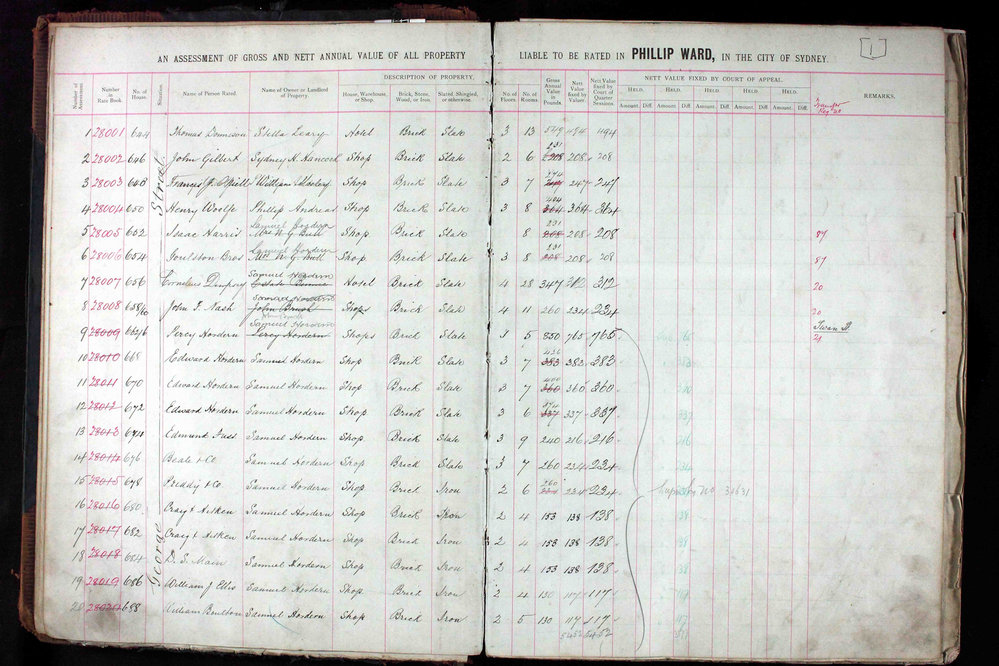 [1]
AN ASSESSMENT OF GROSS AND NETT ANNUAL VALUE OF ALL PROPERTY LIABLE TO BE RATED IN PHILLIP WARD, IN THE CITY OF SYDNEY.
DESCRIPTION OF PROPERTY. NETT VALUE FIXED BY COURT OF APPEAL.
Number of Assessment. Number in Rate Book. No. of House. Situation. Name of Person Rated. Name of Owner or Landlord of Property. House, Warehouse, or Shop. Brick, Stone, Wood, or Iron. Slated, Shingled, or otherwise. No. of Floors. No. of Rooms. Gross Annual Value in Pounds Nett Value fixed by Valuer. Nett Value fixed by Court of Quarter Sessions. HELD. HELD. HELD. HELD. HELD. REMARKS.
Amount. Diff. Amount. Diff. Amount. Diff. Amount. Diff. Amount. Diff.
George Street
1 28001 644 Thomas Stella Leary Hotel Brick Slate 3 13 549 494 494
2 28002 646 John Gilbert Sydney H. Hancock Shop Brick Slate 2 6 231 208 208
3 28003 648 Francis J. William Shop Brick Slate 3 7 274 247 247
4 28004 650 Henry Woolfe Phillip Andreas Shop Brick Slate 3 8 404 364 364 364
Samuel Hordern
5 28005 652 Isaac Harris Mrs N G Butt Shop Brick Slate 8 231 208 208 208 87
Samuel Hordern
6 28006 654 Foulston Bros Mrs N. G. Butt Shop Brick Slate 3 8 231 208 208 208 87
Samuel Hordern
7 28007 656 Cornelius Dempsey Hotel Brick Slate 4 28 347 312 312 20
Samuel Hordern
8 28008 658/60 John F. Nash John Brush Shops Brick Slate 4 11 260 234 234 20
Samuel Hordern
9 28009 662/6 Percy Hordern Percy Hordern Shops Brick Slate 3 5 850 765 765 21
10 28010 668 Edward Hordern Samuel Hordern Shop Brick Slate 3 7 426 383 383 383
11 28011 670 Edward Hordern Samuel Hordern Shop Brick Slate 3 7 400 360 360 360
12 28012 672 Edward Hordern Samuel Hordern Shop Brick Slate 3 6 374 337 337 337
13 28013 674 Edmund Fuss Samuel Hordern Shop Brick Slate 3 9 240 216 216
14 28014 676 Beale & Co Samuel Hordern Shop Brick Slate 3 7 260 234 234
15 28015 678 Priddy & Co. Samuel Hordern Shop Brick Iron 2 6 260 234 234
16 28016 680 Craig & Aitken Samuel Hordern Shop Brick Iron 2 4 153 138 138
17 28017 682 Craig & Aitken Samuel Hordern Shop Brick Iron 2 4 153 138 138
18 28018 684 D. S. Main Samuel Hordern Shop Brick Iron 2 4 153 138 138
19 28019 686 William J Ellis Samuel Hordern Shop Brick Iron 2 4 130 117 117
20 28020 688 William Boulton Samuel Hordern Shop Brick Iron 2 5 130 117 117
5452 5452